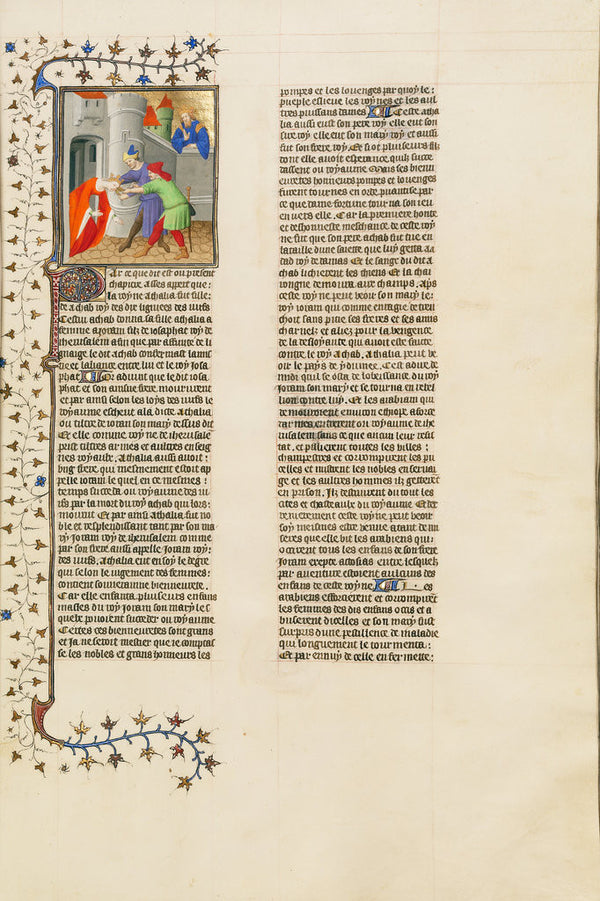 Par ce que dit est ou present
chapitre asses appert que
la royne athalia fut fille
de achab roy des dix lignees des iuifs
Cestui achab donna sa fille athalia a
femme a joram filz de iosaphat roy de
iherusalem afin que par affinite de li
gnaige le dit achab confermast lamis
tie et laliance entre lui et le roy Josa
phat Or advint que le dit iosa
phat et son ainsne frere moururent
et par ainsi selon les loys des iuifs le
royaume escheut ala dicte athalia
ou tiltre de joram son mary dessus dit
Et elle comme royne de iherusalem
prist tiltres armes et aultres enseig
nes royaulx. Athalia aussi avoit
ung frere qui mesmement estoit ap
pelle joram le quel en ce mesmes
temps succeda ou royaume des iu
ifs par la mort du roy achab qui lors
mourut Et par ainsi athalia fut no
ble et resplendissant tant par son ma
ry Joram roy de iherusalem comme
par son frere aussi appelle Joram roy
des iuifs. Athalia eut en soy le degre
qui selon le iugement des femmes
contient souveraine bieneurete.
Car elle enfanta plusieurs enfans
masles du roy joram son mary les
quelx povoient succeder ou royaume
Certes ces bieneuretes sont grans
et ja ne seroit mestier que je comptas
se les nobles et grans honneurs les
pompes et les louenges par quoy le
pueple eslieve les roynes et les aul
tres puissans dames Ceste atha
lia aussi eust son pere roy elle eut son
filz roy elle eut son mary roy et aussi
fut son frere roy Et si ot plusieurs filz
dont elle avoit esperance quilz succe
dassent ou royaume Mais ses bien
euretez honneurs pompes et louenges
furent tournes en orde puantise par
ce que dame fortune tourna son reu
en vers elle. Car la premiere honte
et deshonneste meschance de ceste roy
ne fut que son pere achab fut tue en
bataille dune saiette que luy getta aa
dad roy de damas Et le sang du dit a
chab lichierent les chiens Et sa cha
roigne demoura aux champs. Aps
ceste royne peut veoir son mary le
roy joram qui comme enragie detren
choit sans pitie ses freres et ses amis
charnelz et aliez pour la vengence
de la desloyaute qui avoit este faicte
contre le roy achab. Athalia peut ve
oir le pays de ydumee. Cest adire de
midi quil se osta de lobeissance du roy
joram son mary et se tourna en rebel
lion contre luy. Et les arabiens qui
demouroient environ ethiope a force
dar mes entrerent ou royaume de ihe
rusalem sans ce que aucun leur resis
tat. et pillierent toutes les villes
champestres et corrompirent les pu
celles et mistrent les nobles en servai
ge et les aultres hommes ilz getterent
en prison. Ilz destruirent du tout les
cites et chasteaulx du royaume Et der
renierement ceste royne peut veoir
soy mesmes estre venue atant de mi
seres que elle vit les arabiens qui
occirent tous les enfans de son frere
Joram excepte actosias entre lesquelx
par aventure estoient aulcuns des
enfans de ceste royne Les
arabiens efforcierent et corrompirent
les femmes des dis enfans occis et a
buserent dicelles et son mary fut
surpris dune pestilence de maladie
qui longuement le tourmenta
Et par ennuy de celle enfermete